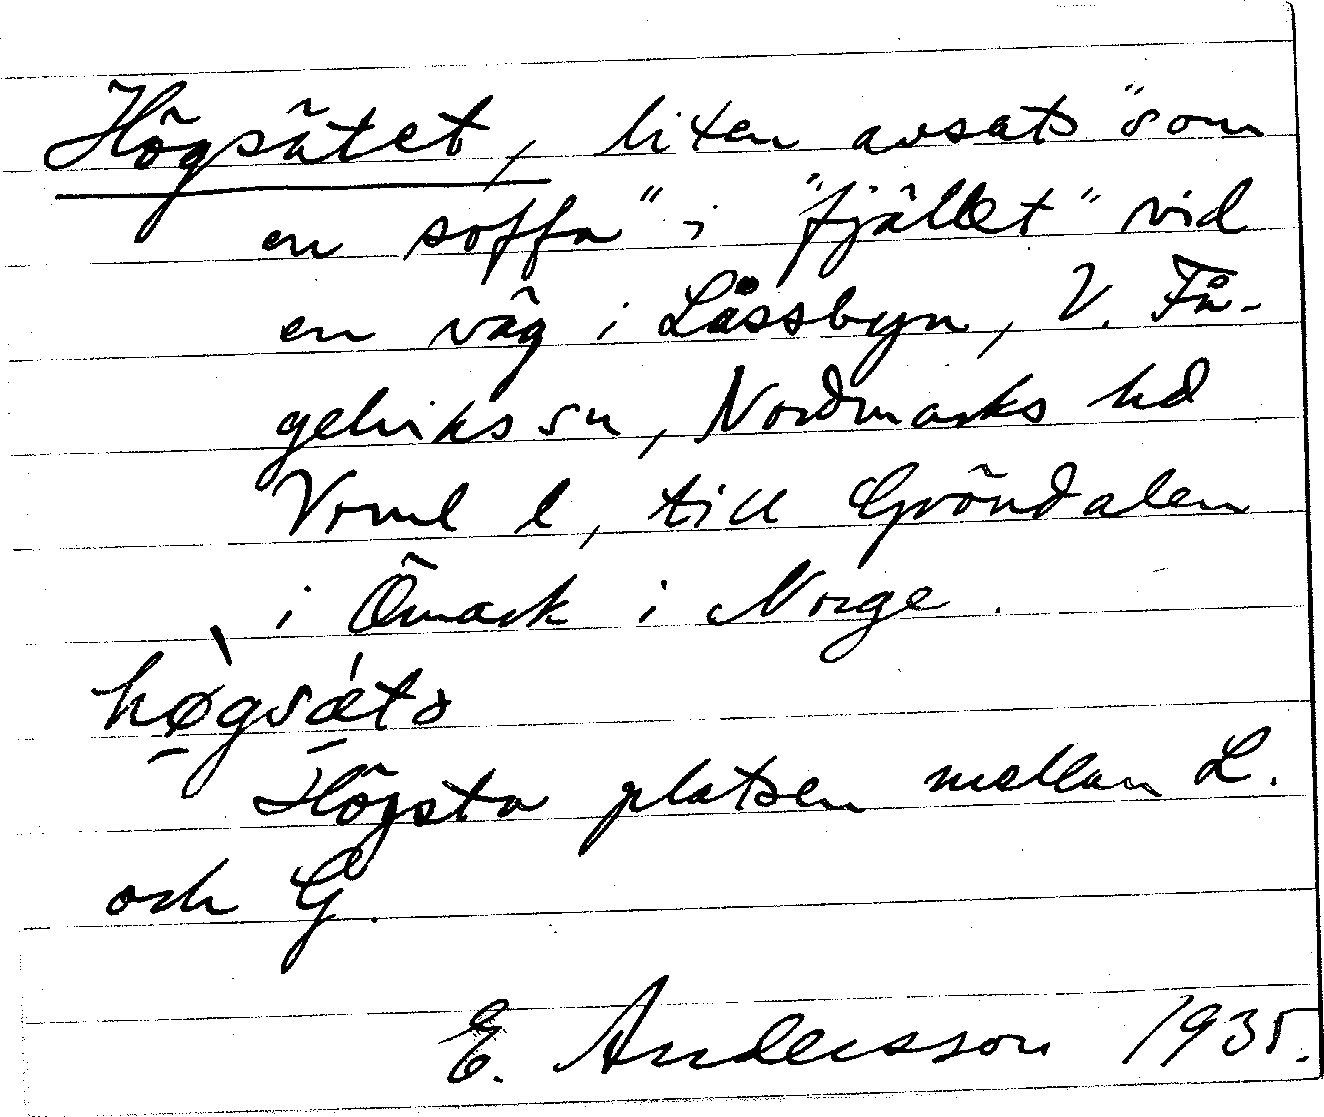 Högsätet, liten avsats "som
en soffa" i "fjället" vid
en väg i Lässbyn, V. Få-
gelviks sn, Nordmarks hd
Vrml l, till Gröndalen
i Ömark i Norge.
hø̀gsǽtə
Högsta platsen mellan L.
och G.
E. Andersson 1935.